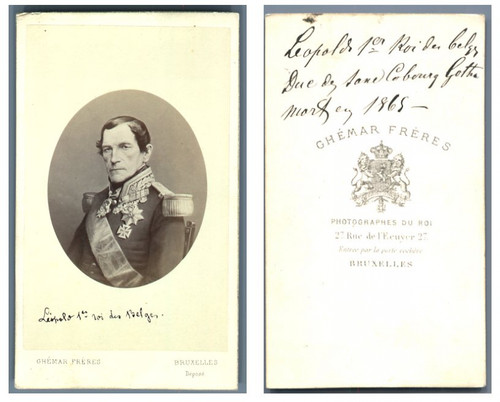 Léopold 1er roi des Belges.
GHÉMAR FRÈRES
BRUXELLES
Déposé
Léopold 1er Roi des belges
Duc de Saxe Cobourg Gotha
mort en 1865 —
GHÉMAR FRÈRES
PHOTOGRAPHES DU ROI
27 Rue de l'Ecuyer 27
Envoi par la poste
BRUXELLES